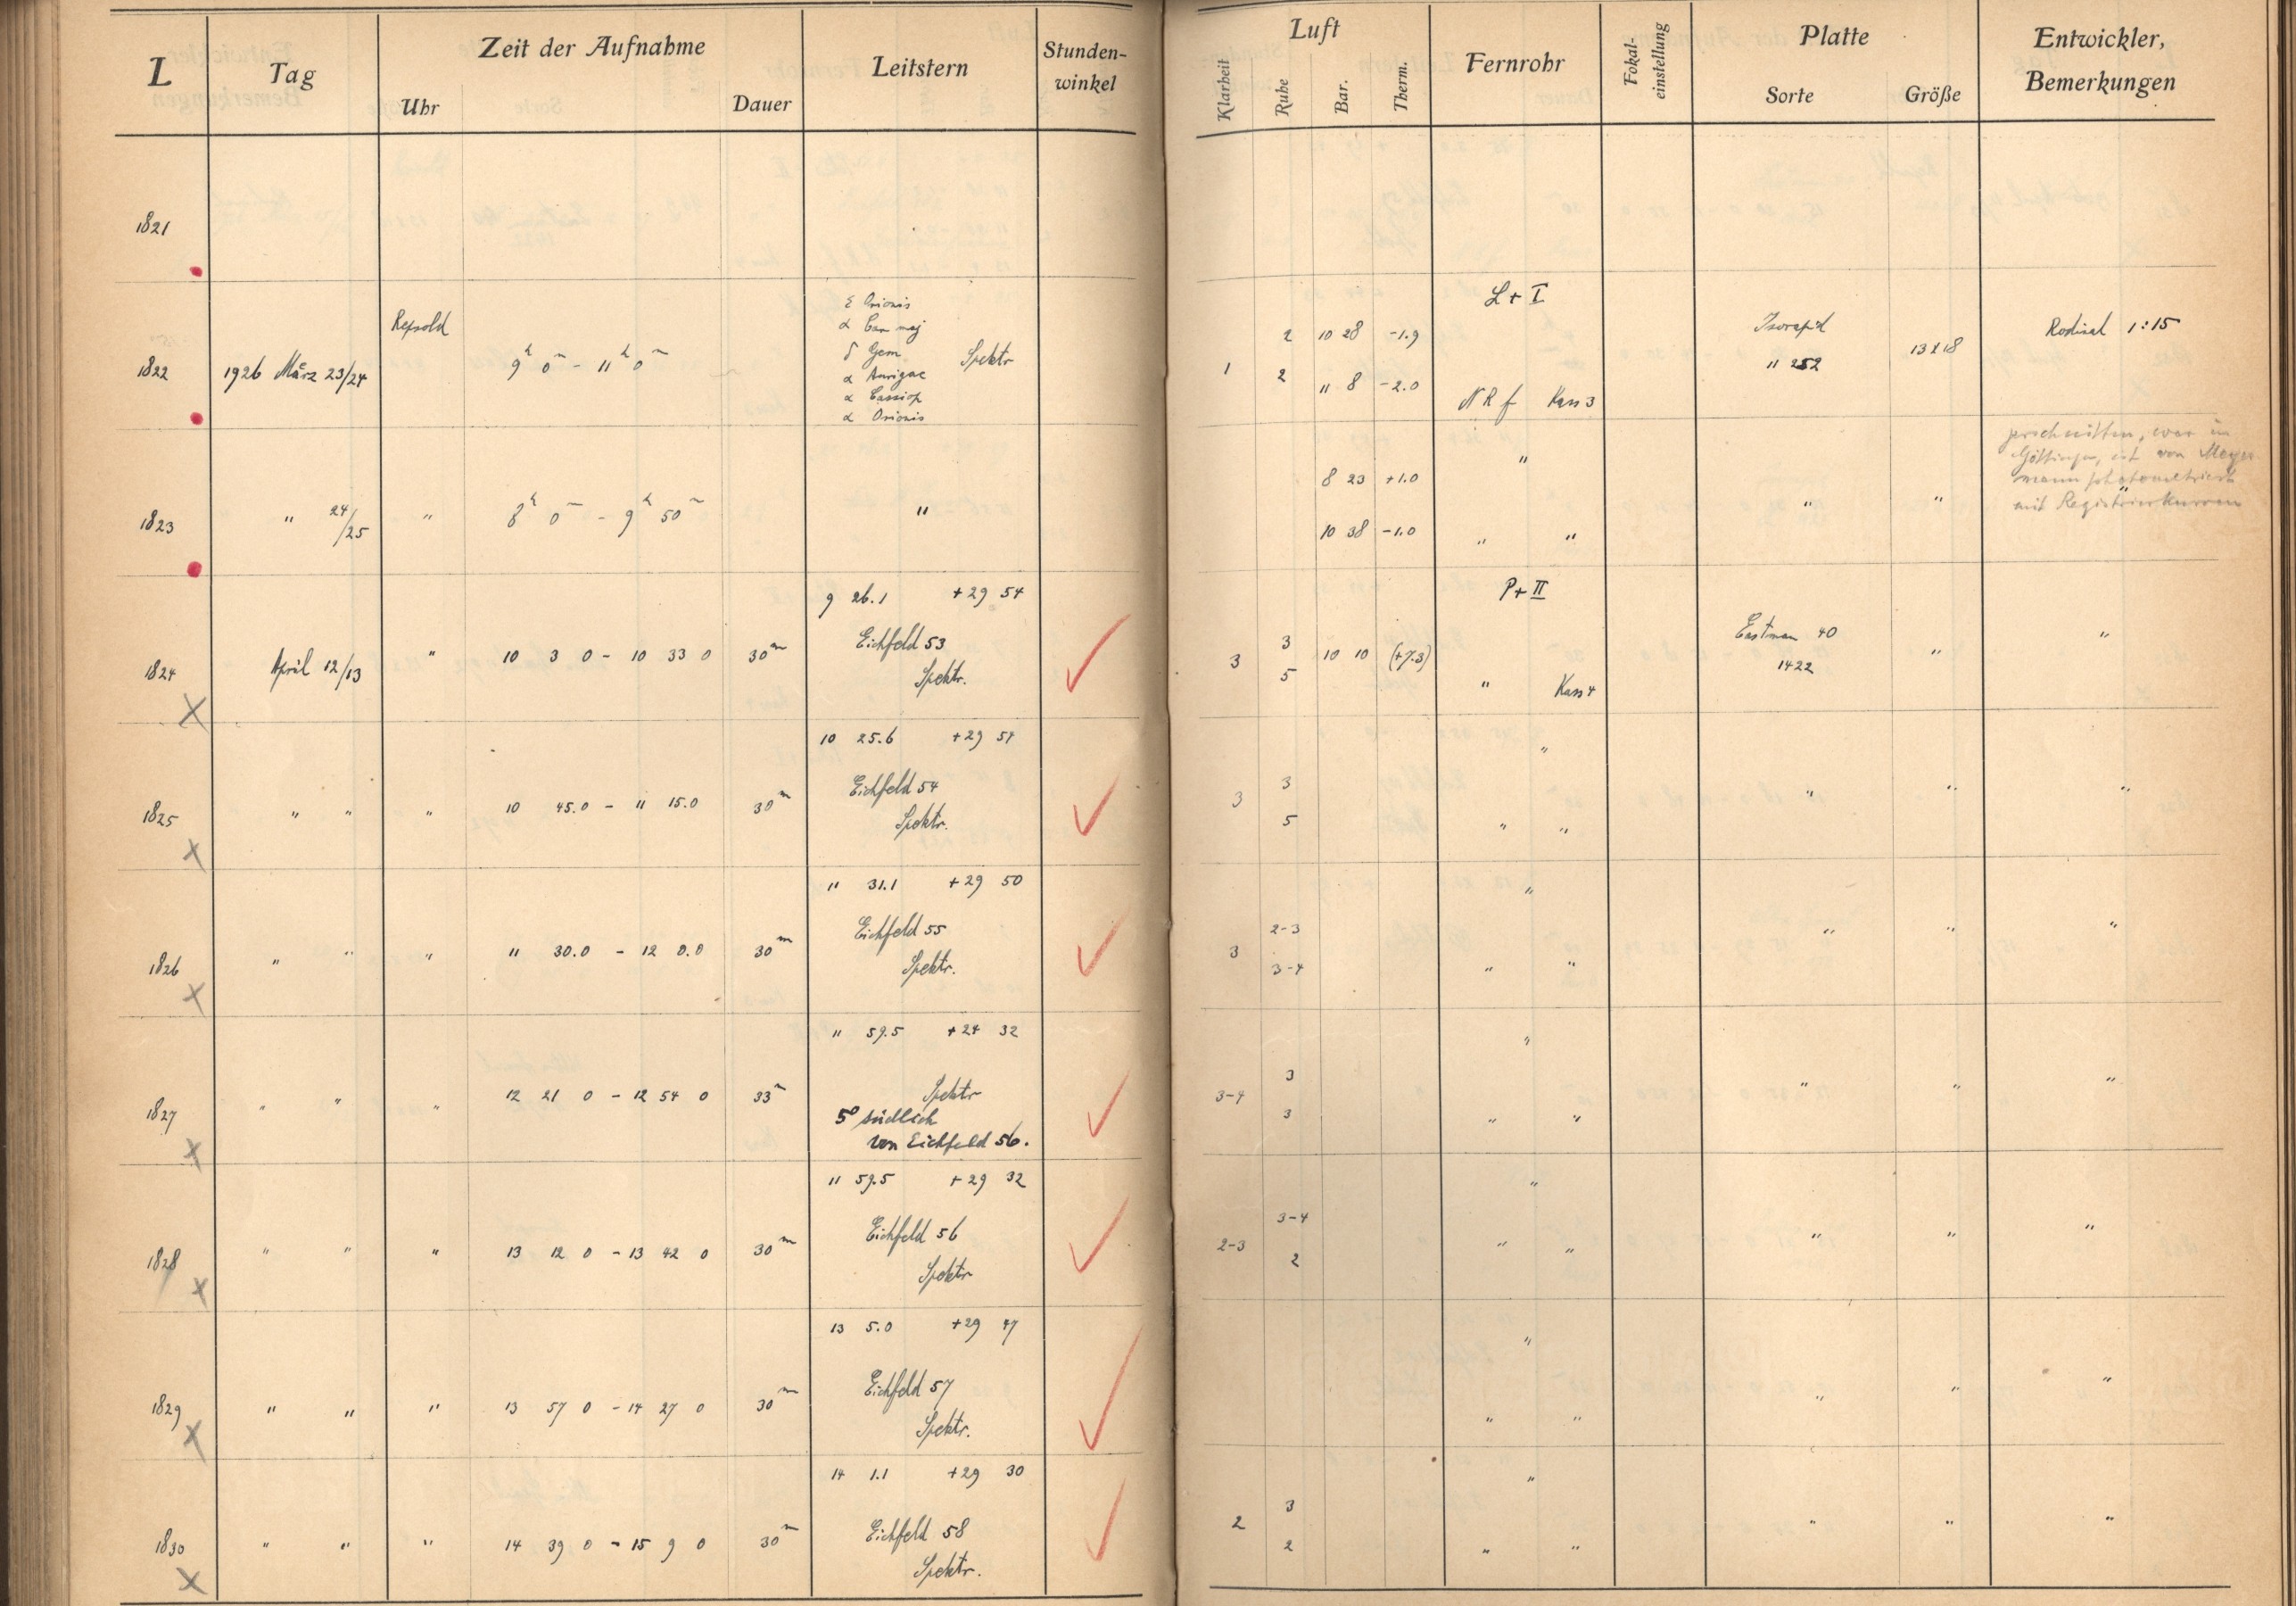 L Tag Zeit der Aufnahme Leitstern Stunden-
winkel
Uhr Dauer
Luft Fernrohr Fokal-
einstellung Platte Entwickler,
Bemerkungen
Klarheit Ruhe Bar. Therm. Sorte Größe
1821
ε Orionis
α Can maj
Repsold
δ Gem Spektr
1822 1926 März 23/24 9h 0m - 11h 0m
α Aurigae
α Cassiop
α Orionis
L + I
2 10 28 -1.9 Isorapid Rodinal 1:15
1 2 11 8 -2.0 11 252 13x18
N R f Kass 3
1823 " 24/25 " 8h 0m - 9h 50m "
zerschnitten, war in
Göttingen, ist von Meyer-
mann photometriert
mit Registrierkurven
"
8 23 +1.0
" " "
10 38 -1.0 " "
9 26.1 +29 54
Eichfeld 53
1824 April 12/13 " 10 3 0 - 10 33 0 30m
Spektr.
P + II
3 Eastman 40 "
3 10 10 (+7.3) 1422 "
5 " Kass 4
10 25.6 +29 54
Eichfeld 54
1825 " " " 10 45.0 - 11 15.0 30m
Spektr.
"
3
3 " " "
5 " "
11 31.1 +29 50
Eichfeld 55
1826 " " " 11 30.0 - 12 0.0 30m
Spektr.
"
2-3 " " "
3
3-4 " "
11 59.5 +24 32
1827 " " " 12 21 0 - 12 54 0 33m Spektr
5° südlich
von Eichfeld 56.
"
3 " " "
3-4
3 " "
11 59.5 +29 32
Eichfeld 56
1828 " " " 13 12 0 - 13 42 0 30m
Spektr
"
3-4 " " "
2-3 " "
2
13 5.0 +29 47
Eichfeld 57
1829 " " " 13 57 0 - 14 27 0 30m
Spektr.
"
" " "
" "
14 1.1 +29 30
Eichfeld 58
1830 " " " 14 39 0 - 15 9 0 30m
Spektr.
"
3
2 " " "
2 " "